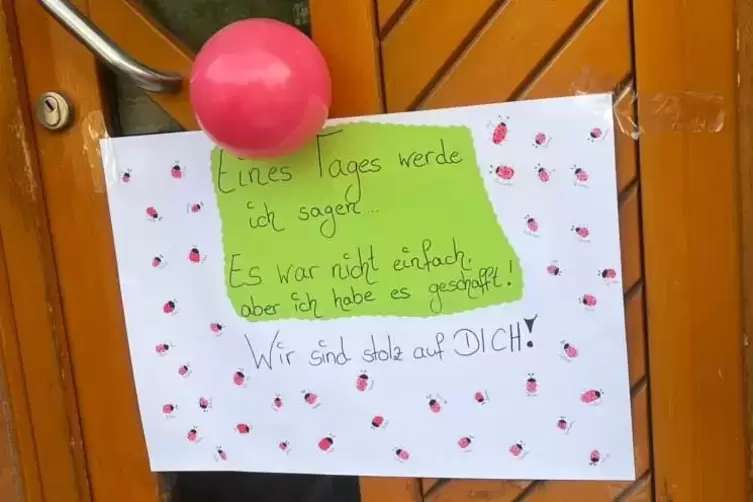 Eines Tages werde
ich sagen...
Es war nicht einfach,
aber ich habe es geschafft!
Wir sind stolz auf DICH!